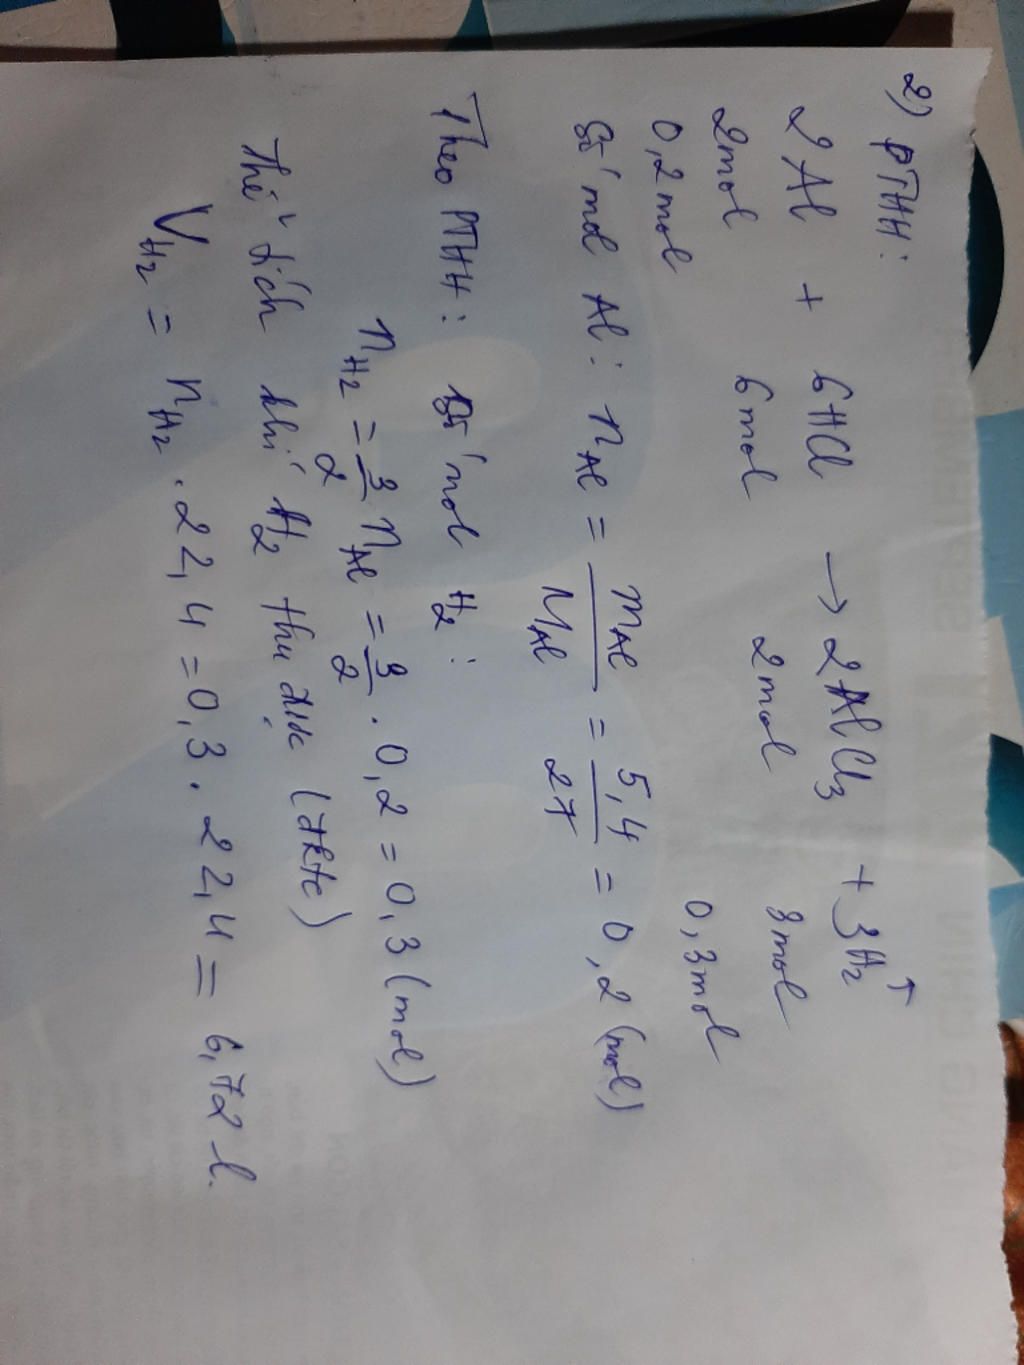 2) PTHH:
2Al + 6HCl → 2AlCl3 + 3H2↑
2mol 6mol 2mol 3mol
0,2mol 0,3mol
Số mol Al: nAl = mAl / MAl = 5,4 / 27 = 0,2 (mol)
Theo PTHH: Số mol H2:
nH2 = 3/2 nAl = 3/2 . 0,2 = 0,3 (mol)
Thể tích khí H2 thu được (đktc)
VH2 = nH2 . 22,4 = 0,3 . 22,4 = 6,72 l.